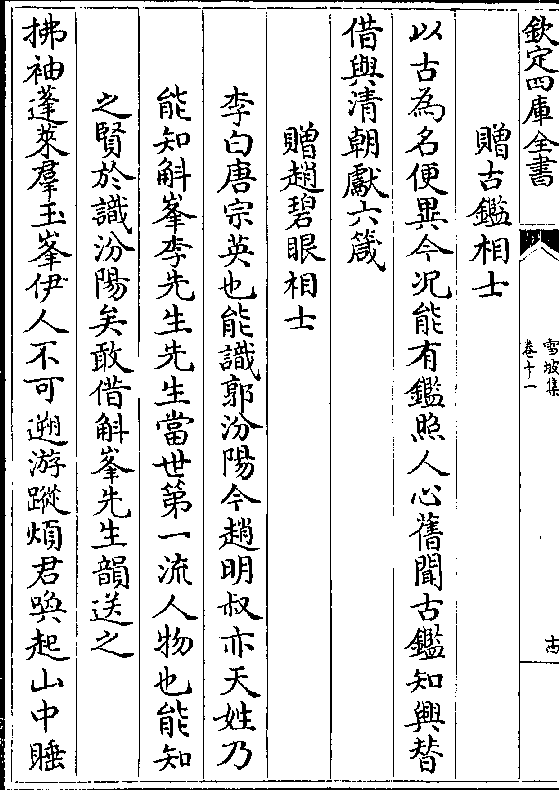 欽定四庫全書
雪坡集
卷十一
古
贈古鑑相士
以古為名便異今况能有鑑照人心舊聞古鑑知興替
借與清朝獻六箴
贈趙碧眼相士
李白唐宗英也能識郭汾陽今趙明叔亦天姓乃
能知斛峯李先生先生當世第一流人物也能知
之賢於識汾陽矣敢借斛峯先生韻送之
拂袖蓬萊羣玉峯伊人不可遡游蹤煩君喚起山中睡